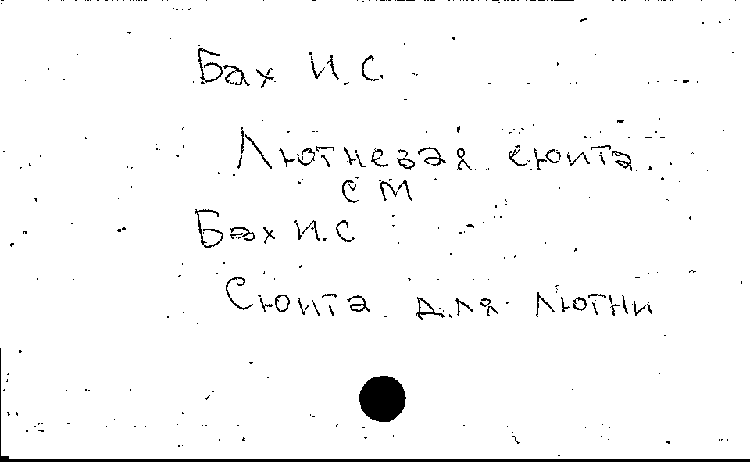 Бах И.С.
Лютневая сюита.
см
Бах И.С
Сюита для лютни